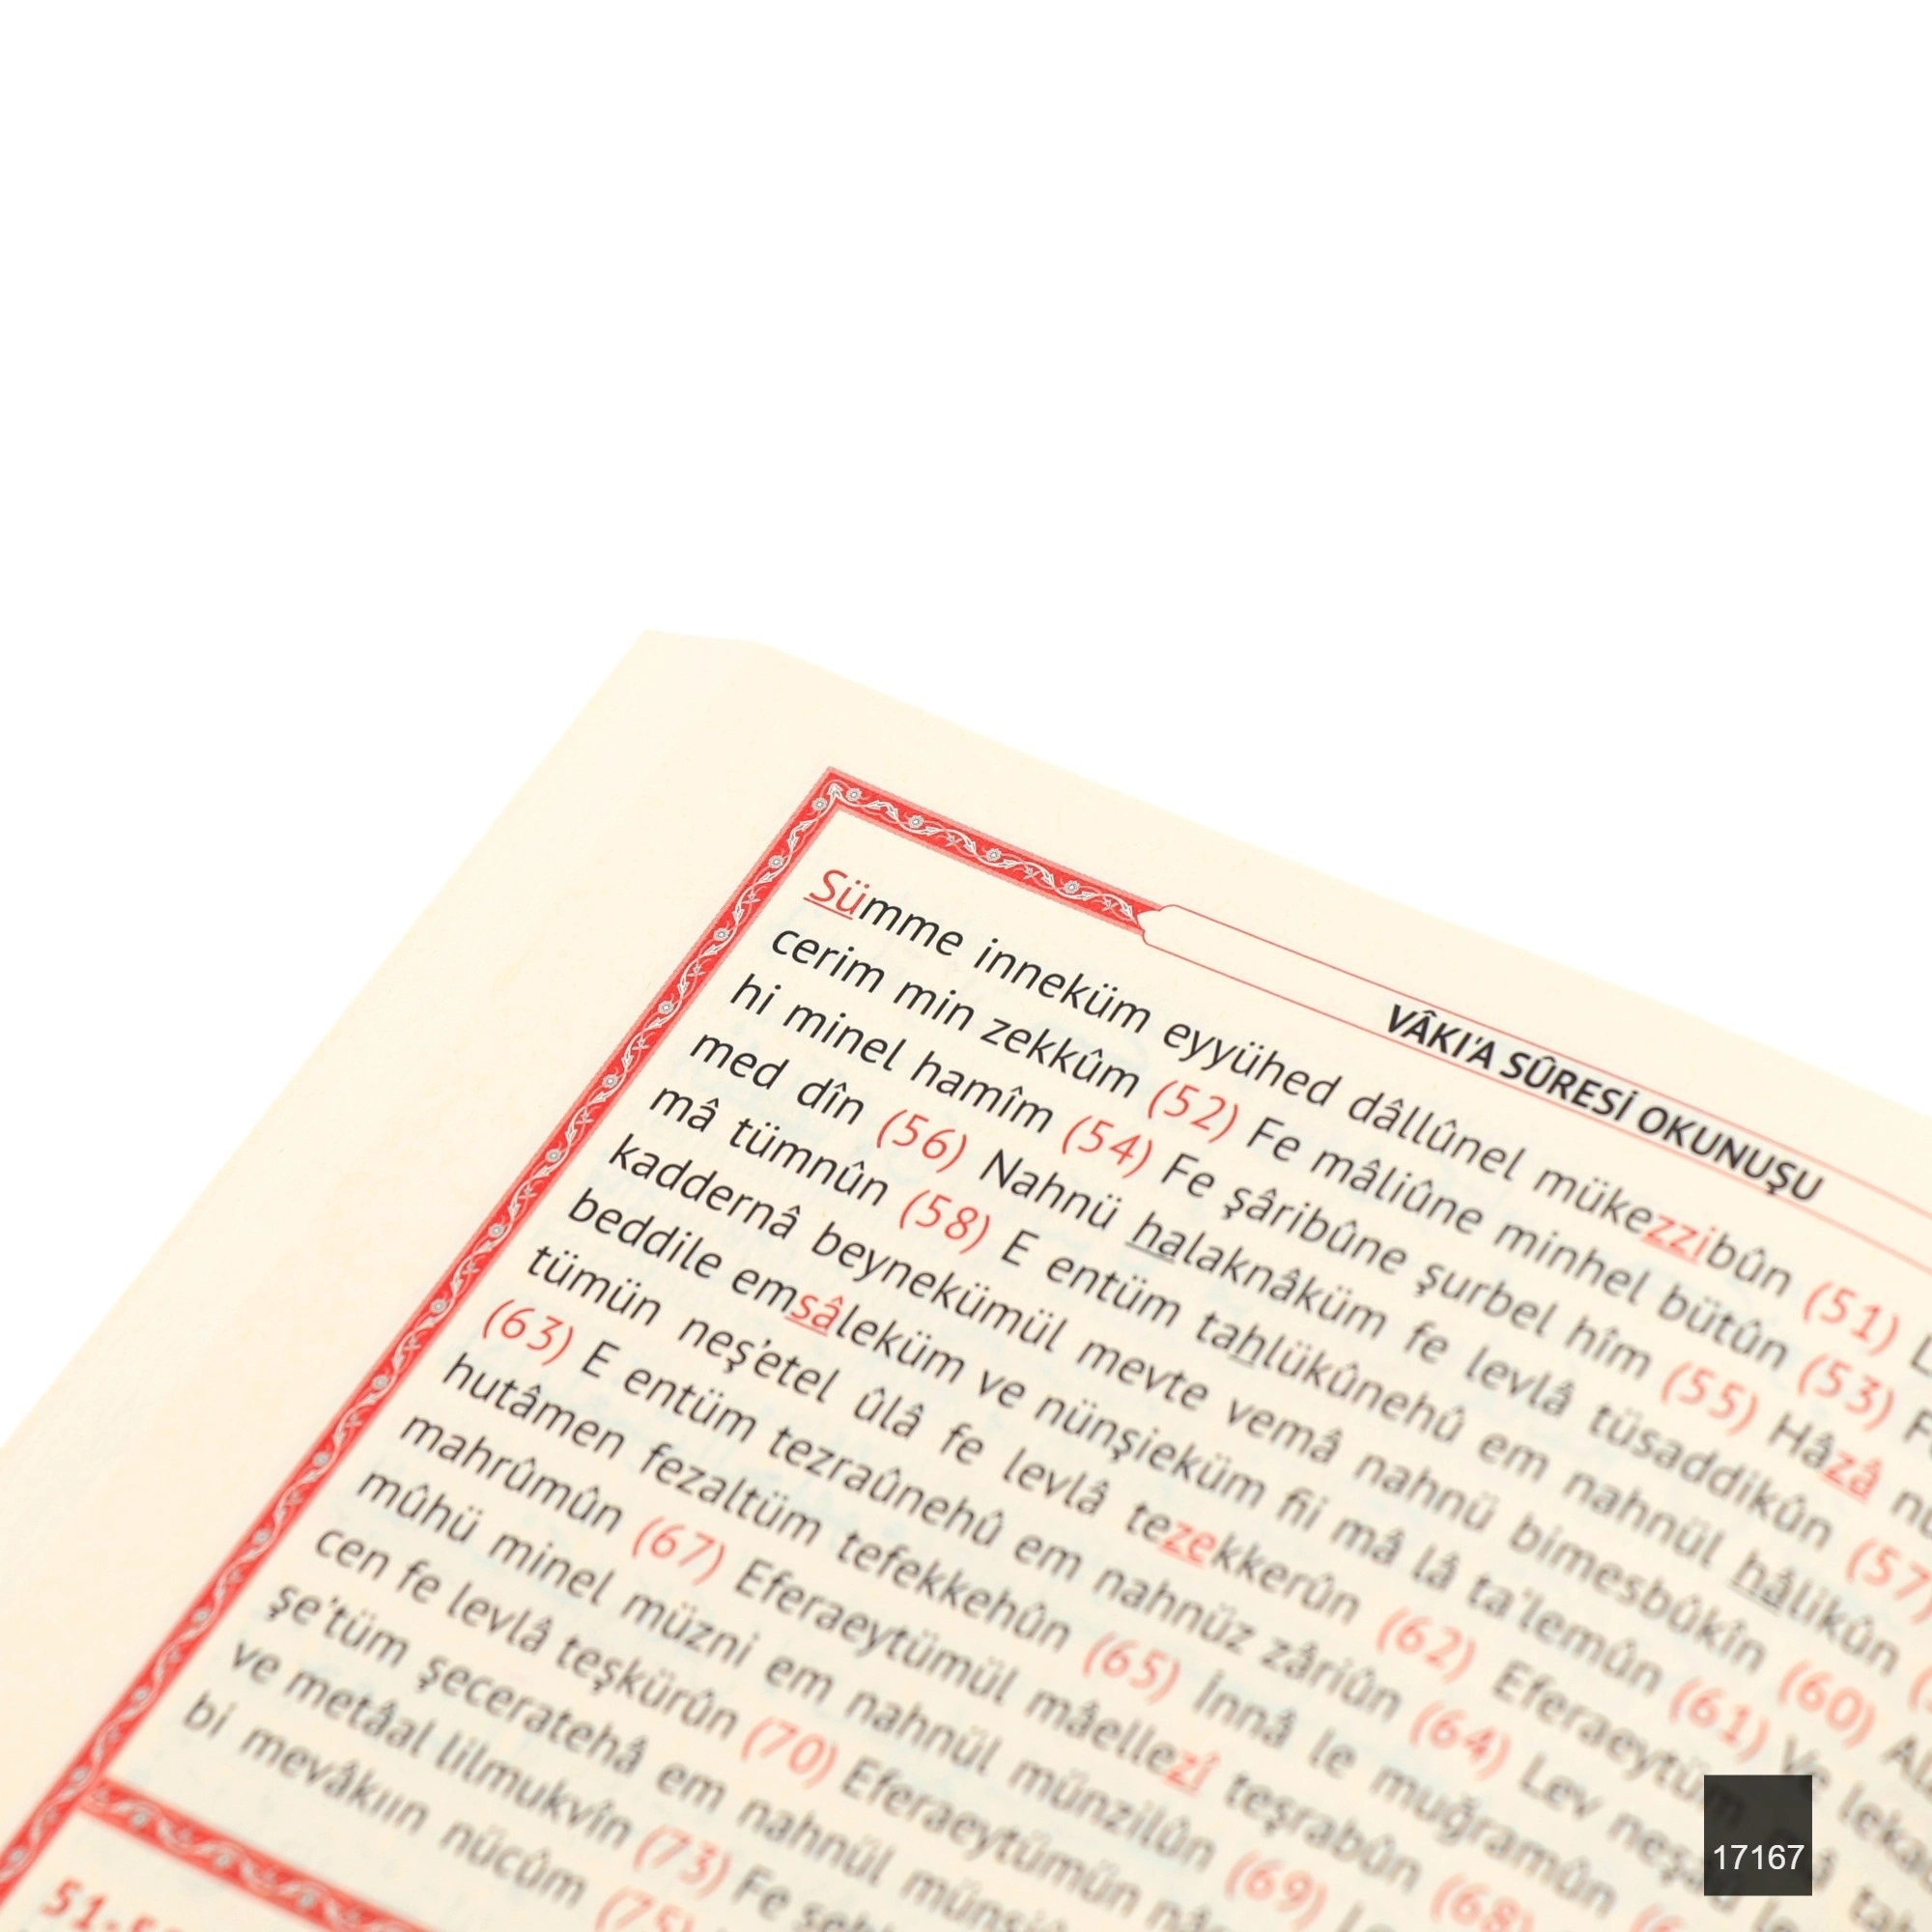 VÂKI'A SÛRESİ OKUNUŞU
Sümme inneküm eyyühed dâllûnel mükezzibûn (51)
cerim min zekkûm (52) Fe mâliûne minhel bütûn (53)
hi minel hamîm (54) Fe şâribûne şurbel hîm (55) Hâzâ
med dîn (56) Nahnü halaknâküm fe levlâ tüsaddikûn (57)
mâ tümnûn (58) E entüm tahlükûnehû em nahnül hâlikûn
kaddernâ beynekümül mevte vemâ nahnü bimesbûkîn (60)
beddile emsâleküm ve nünşieküm fii mâ lâ ta'lemûn (61) Ve
tümün neş'etel ûlâ fe levlâ tezekkerûn (62) Eferaeytüm
(63) E entüm tezraûnehû em nahnüz zâriûn (64) Lev
hutâmen fezaltüm tefekkehûn (65) İnnâ le muğramûn
mahrûmûn (67) Eferaeytümül mâellezî teşrabûn (68)
mûhü minel müzni em nahnül münzilûn (69)
cen fe levlâ teşkürûn (70) Eferaeytümün
şe'tüm şeceratehâ em nahnül
ve metâal lilmukvîn (73) Fe
bi mevâkıın nücûm (75)
17167